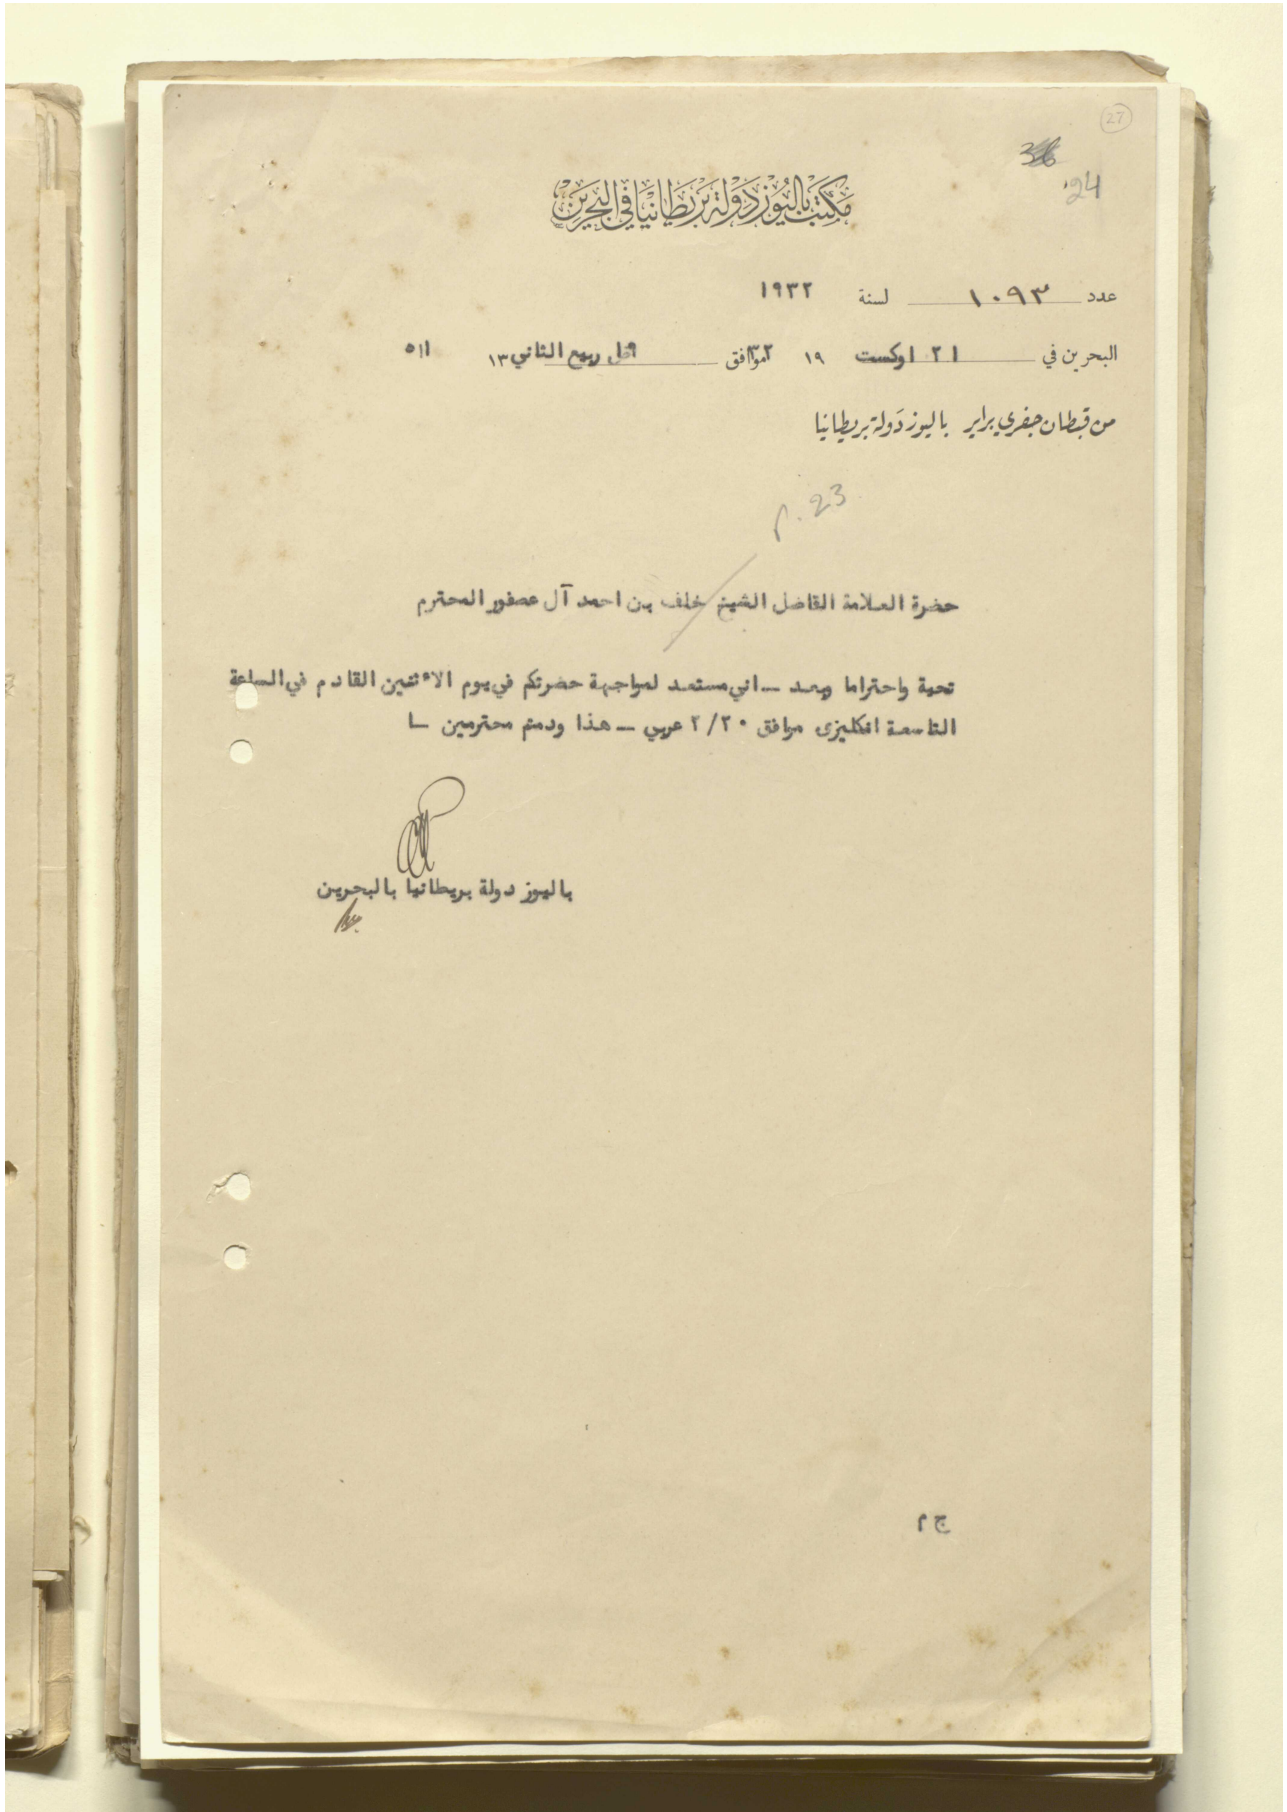 27
24
مكتب باليوز دولة بريطانيا في البحرين
عدد ١٠٩٣ لسنة ١٩٣٢
البحرين في ٢١ اوكست ١٩٣٢ موافق ربيع الثاني ١٣٥١
من قبطان جفري براير باليوز دولة بريطانيا
p. 23
حضرة العلامة الفاضل الشيخ خلف بن احمد آل عصفور المحترم
تحية واحتراما وبعد ــ اني مستعد لمواجهة حضرتكم في يوم الاثنين القادم في الساعة
التاسعة انكليزى موافق ٢/٢٠ عربي ــ هذا ودمتم محترمين ــ
باليوز دولة بريطانيا بالبحرين
ج م